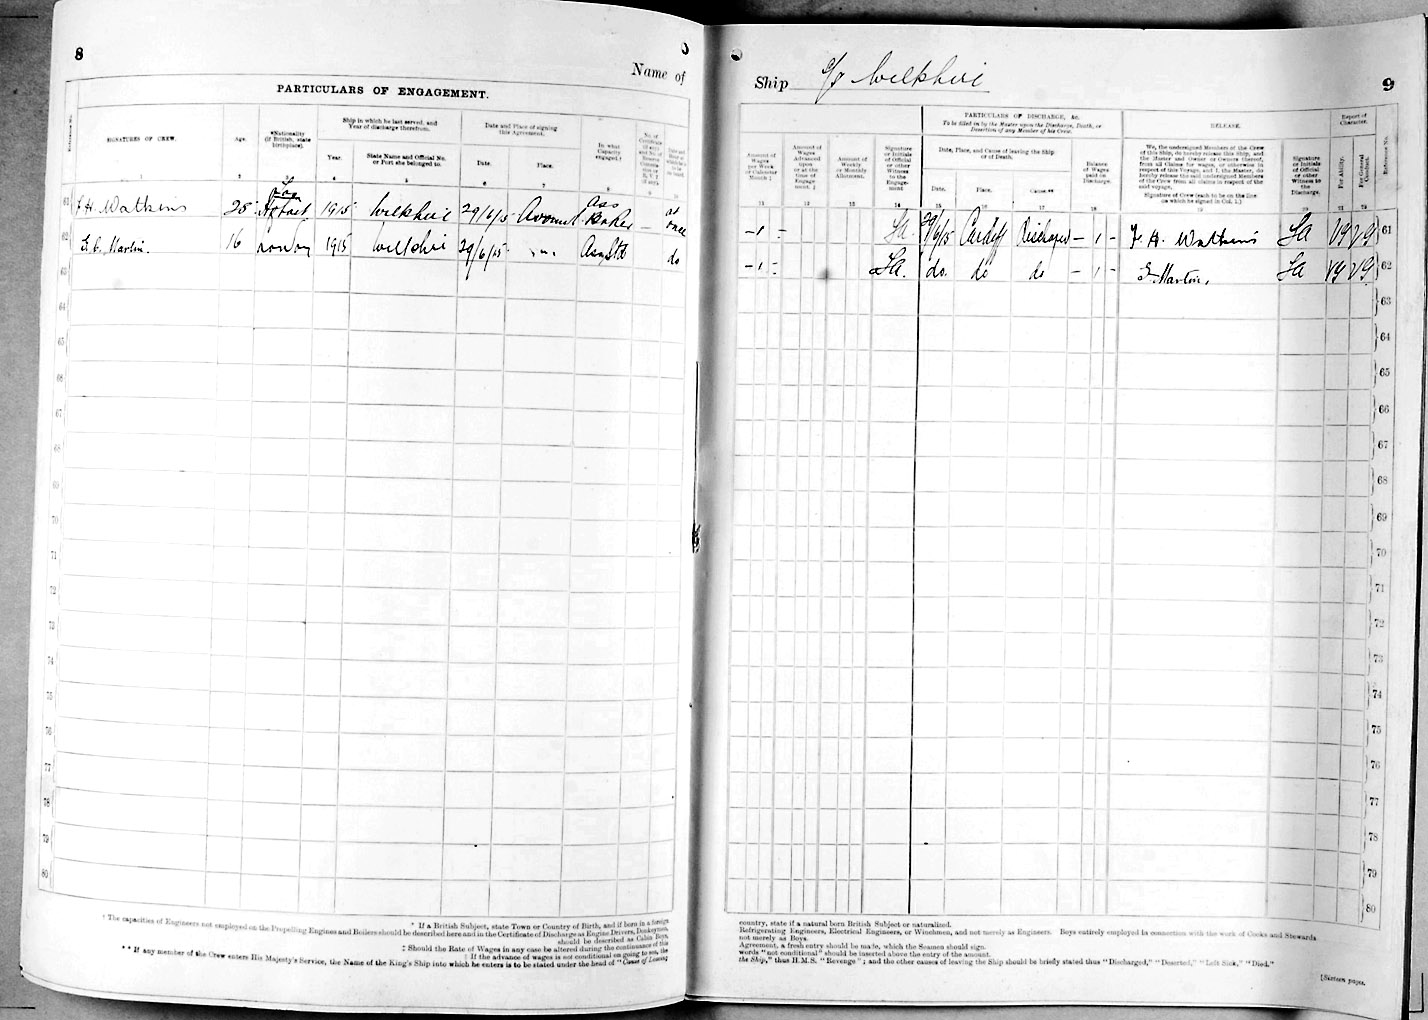 8
Name of
PARTICULARS OF ENGAGEMENT.
Reference No.
SIGNATURES OF CREW.
Age.
*Nationality (if British, state birthplace).
Ship in which he last served, and Year of discharge therefrom.
Year.
State Name and Official No. or Port she belonged to.
Date and Place of signing this Agreement.
Date.
Place.
In what Capacity engaged.†
1 2 3 4 5 6 7 8 9 10
61 F. H. Watkins 28 1915 29/6/15 Avonm'th Ass Baker — at once
62 E. C. Martin. 16 London 1915 29/6/15 do
63
64
65
66
67
68
69
70
71
72
73
74
75
76
77
78
79
80
† The capacities of Engineers not employed on the Propelling Engines and Boilers should be described here and in the Certificate of Discharge as Engine Drivers, Donkeymen,
* If a British Subject, state Town or Country of Birth, and if born in a foreign
should be described as Cabin Boys,
‡ Should the Rate of Wages in any case be altered during the continuance of this
‡ If the advance of wages is not conditional on going to sea, the
** If any member of the Crew enters His Majesty's Service, the Name of the King's Ship into which he enters is to be stated under the head of "Cause of Leaving
Ship
9
PARTICULARS OF DISCHARGE, &c.
To be filled in by the Master upon the Discharge, Death, or Desertion of any Member of his Crew.
RELEASE.
Report of Character.
Amount of Wages per Week or Calendar Month ‡
Amount of Wages Advanced upon or at the time of Engagement. ‡
Amount of Weekly or Monthly Allotment.
Signature or Initials of Official or other Witness to the Engagement
Date, Place, and Cause of leaving the Ship or of Death.
Date.
Place.
Cause.**
Balance of Wages paid on Discharge.
We, the undersigned Members of the Crew of this Ship, do hereby release this Ship, and the Master and Owner or Owners thereof, from all Claims for wages, or otherwise in respect of this Voyage, and I, the Master, do hereby release the said undersigned Members of the Crew from all claims in respect of the said voyage.
Signature of Crew (each to be on the line on which he signed in Col. 1.)
Signature or Initials of Official or other Witness to the Discharge.
For Ability.
For General Conduct.
Reference No.
11 12 13 14 15 16 17 18 19 20 21 22
– 1 – 29/6/15 Cardiff Discharged – 1 – F. H. Watkins VG VG 61
– 1 – do. do do – 1 – E. Martin. VG VG 62
63
64
65
66
67
68
69
70
71
72
73
74
75
76
77
78
79
80
country, state if a natural born British Subject or naturalized.
Refrigerating Engineers, Electrical Engineers, or Winchmen, and not merely as Engineers. Boys entirely employed in connection with the work of Cooks and Stewards
not merely as Boys.
Agreement, a fresh entry should be made, which the Seamen should sign.
words "not conditional" should be inserted above the entry of the amount.
the Ship," thus H.M.S. "Revenge"; and the other causes of leaving the Ship should be briefly stated thus "Discharged," "Deserted," "Left Sick," "Died."
[Sixteen pages.